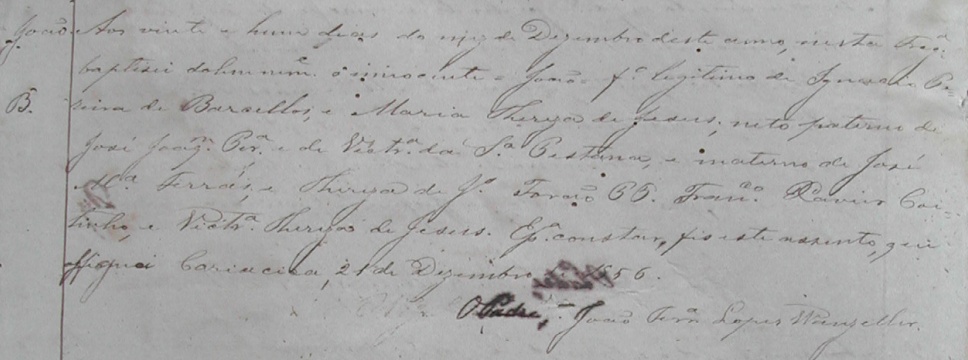 João Aos vinte e hum dias do mez de Dezembro deste anno, nesta Freg.
baptizei solemnem.e o innocente João f.o legitimo de Ignacio Pe-
B. reira de Barcellos, e Maria Thereza de Jesus; neto paterno de
José Joaq.m Per.a e de Victr.a da S.a Pestana, e materno de José
M.a Ferrás, e Thereza de J.s Forão PP. Fran.co Xavier Coi-
tinho, e Victr.a Thereza de Jesus. E p.a constar, fis este assento, que
assignei Cariacica, 21 de Dezembro 1856.
O Padre, João Ferr.a Lopes Wanzeller.